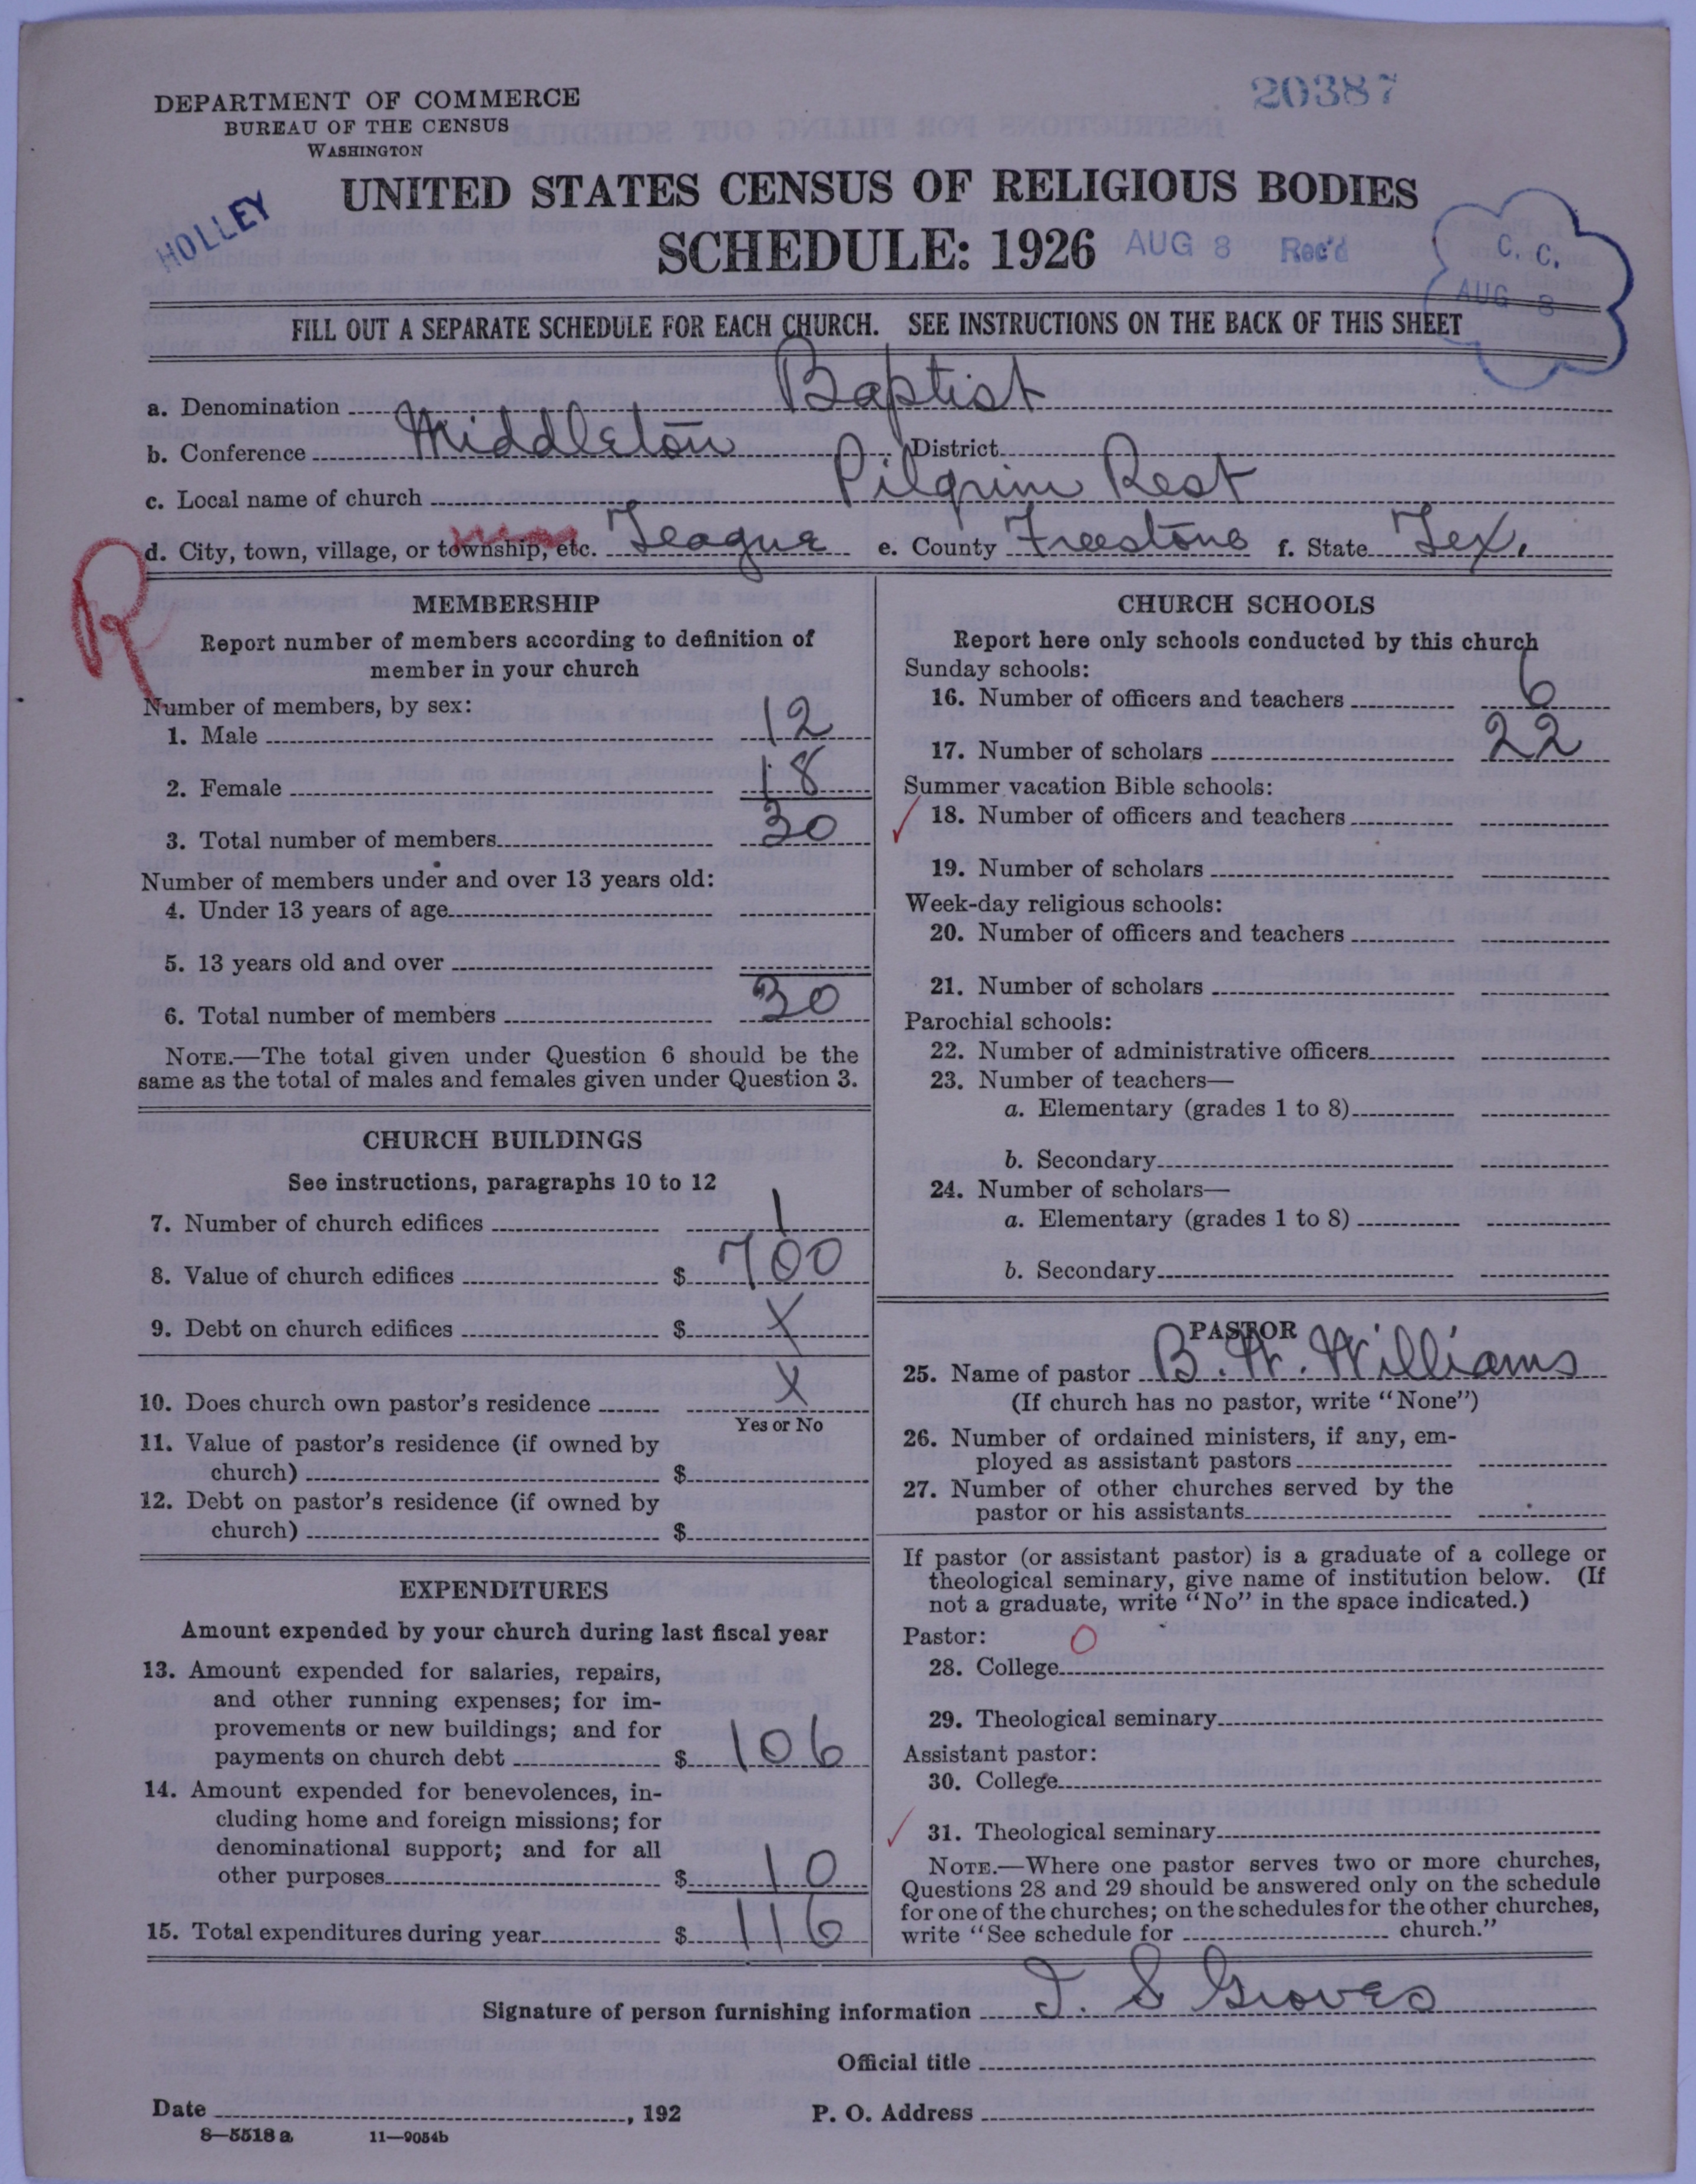 20387
DEPARTMENT OF COMMERCE
BUREAU OF THE CENSUS
WASHINGTON
HOLLEY
UNITED STATES CENSUS OF RELIGIOUS BODIES
SCHEDULE: 1926 AUG 8 Rec'd
C. C.
AUG 8
FILL OUT A SEPARATE SCHEDULE FOR EACH CHURCH. SEE INSTRUCTIONS ON THE BACK OF THIS SHEET
a. Denomination Baptist
b. Conference Middleton District
c. Local name of church Pilgrim Rest
d. City, town, village, or township, etc. Teague e. County Freestone f. State Tex.
R
MEMBERSHIP
Report number of members according to definition of
member in your church
Number of members, by sex:
1. Male 12
2. Female 18
3. Total number of members 30
Number of members under and over 13 years old:
4. Under 13 years of age
5. 13 years old and over
6. Total number of members 30
NOTE.—The total given under Question 6 should be the
same as the total of males and females given under Question 3.
CHURCH BUILDINGS
See instructions, paragraphs 10 to 12
7. Number of church edifices 1
8. Value of church edifices $ 700
9. Debt on church edifices $ X
10. Does church own pastor's residence X
Yes or No
11. Value of pastor's residence (if owned by
church) $
12. Debt on pastor's residence (if owned by
church) $
EXPENDITURES
Amount expended by your church during last fiscal year
13. Amount expended for salaries, repairs,
and other running expenses; for im-
provements or new buildings; and for
payments on church debt $ 106
14. Amount expended for benevolences, in-
cluding home and foreign missions; for
denominational support; and for all
other purposes $ 10
15. Total expenditures during year $ 116
CHURCH SCHOOLS
Report here only schools conducted by this church
Sunday schools:
16. Number of officers and teachers 6
17. Number of scholars 22
Summer vacation Bible schools:
18. Number of officers and teachers
19. Number of scholars
Week-day religious schools:
20. Number of officers and teachers
21. Number of scholars
Parochial schools:
22. Number of administrative officers
23. Number of teachers—
a. Elementary (grades 1 to 8)
b. Secondary
24. Number of scholars—
a. Elementary (grades 1 to 8)
b. Secondary
PASTOR
25. Name of pastor B. W. Williams
(If church has no pastor, write "None")
26. Number of ordained ministers, if any, em-
ployed as assistant pastors
27. Number of other churches served by the
pastor or his assistants
If pastor (or assistant pastor) is a graduate of a college or
theological seminary, give name of institution below. (If
not a graduate, write "No" in the space indicated.)
Pastor: 0
28. College
29. Theological seminary
Assistant pastor:
30. College
31. Theological seminary
NOTE.—Where one pastor serves two or more churches,
Questions 28 and 29 should be answered only on the schedule
for one of the churches; on the schedules for the other churches,
write "See schedule for church."
Signature of person furnishing information I. S Groves
Official title
Date , 192 P. O. Address
8—5518 a 11—9054b